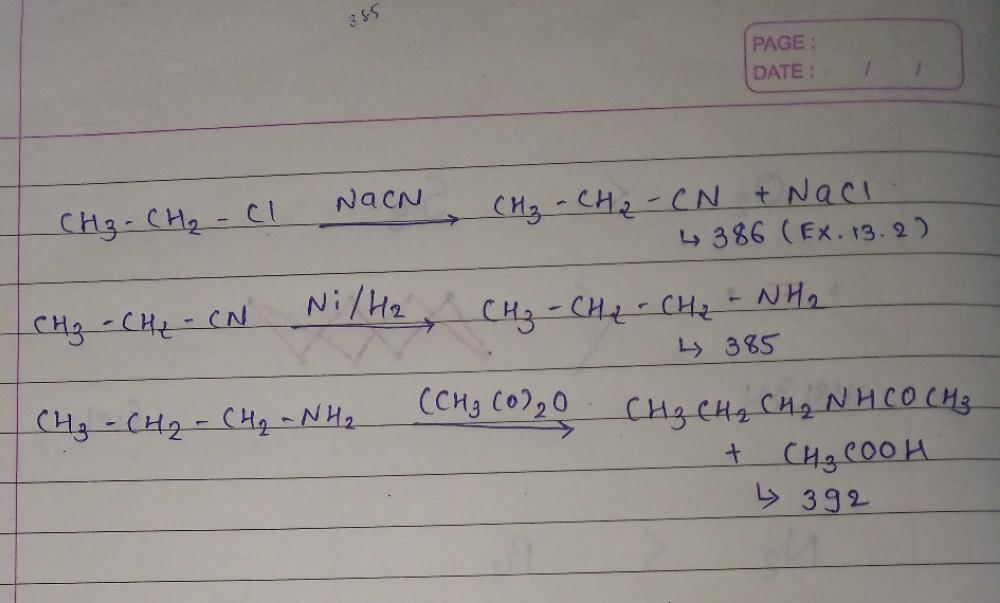 385
PAGE :
DATE : / /
CH3 - CH2 - Cl NaCN → CH3 - CH2 - CN + NaCl
↳ 386 (EX. 13.2)
CH3 - CH2 - CN Ni/H2 → CH3 - CH2 - CH2 - NH2
↳ 385
CH3 - CH2 - CH2 - NH2 (CH3CO)2O → CH3CH2CH2NHCOCH3
+ CH3COOH
↳ 392